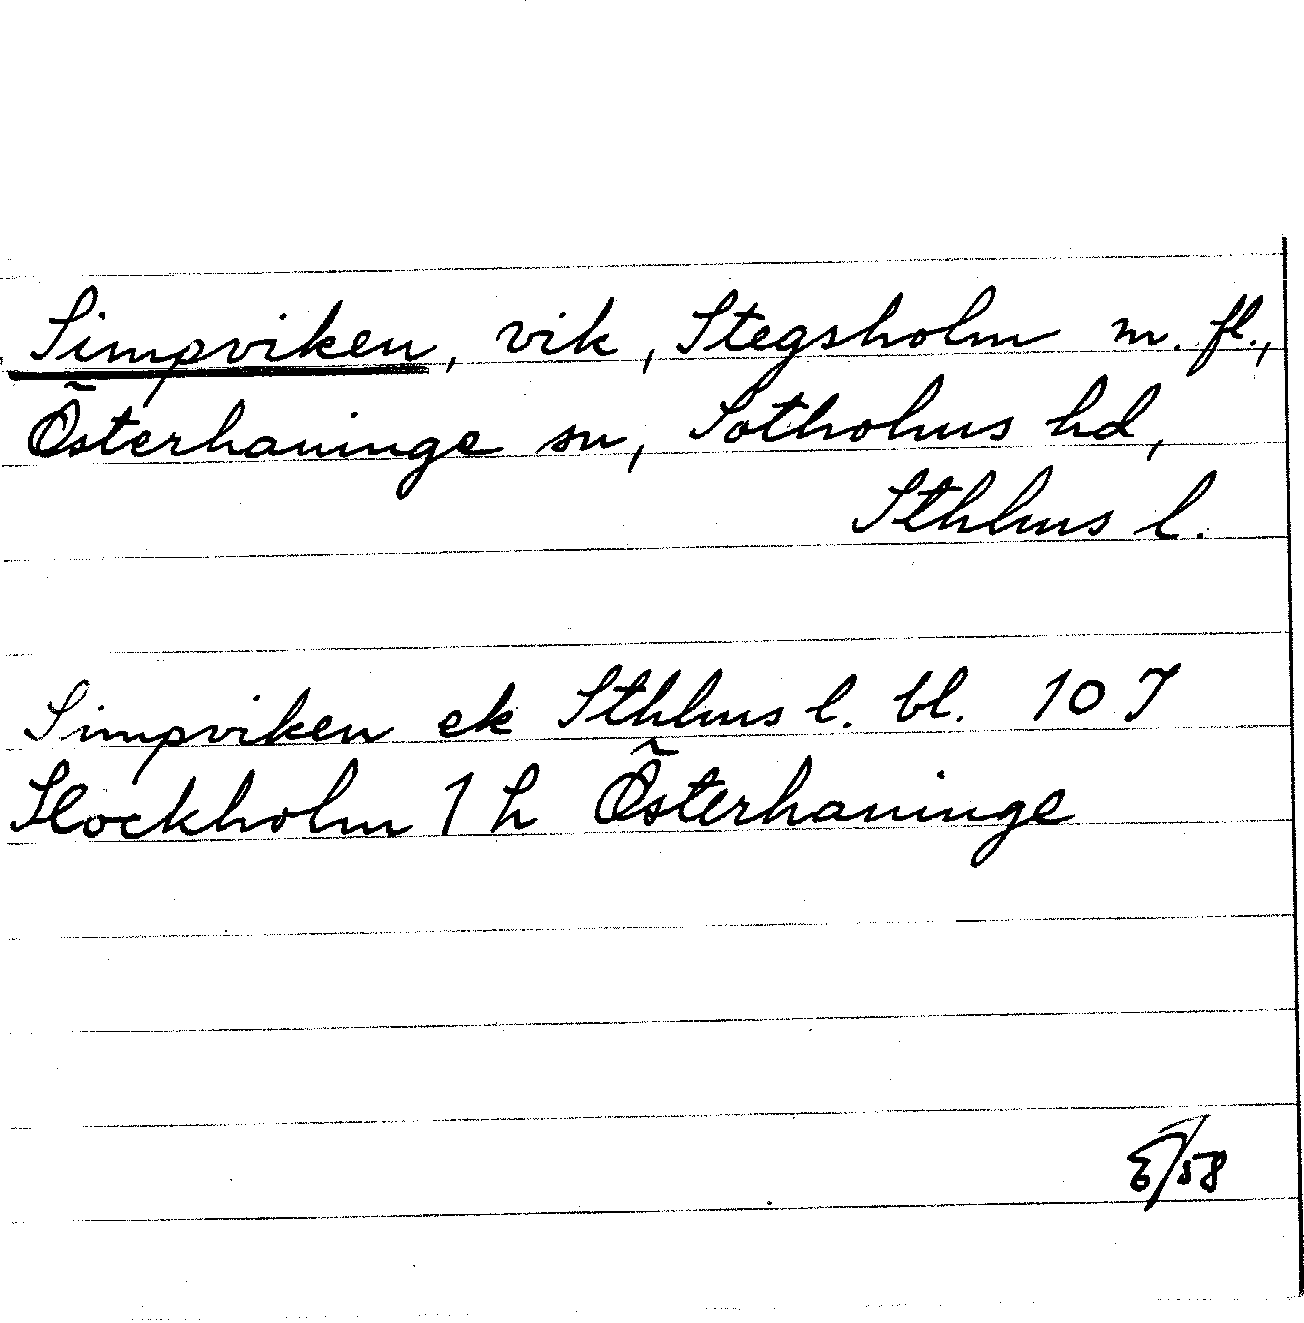 Simpviken, vik, Stegsholm m. fl.,
Österhaninge sn, Sotholms hd,
Sthlms l.
Simpviken ek Sthlms l. bl. 10 J
Stockholm 1 h Österhaninge
/58